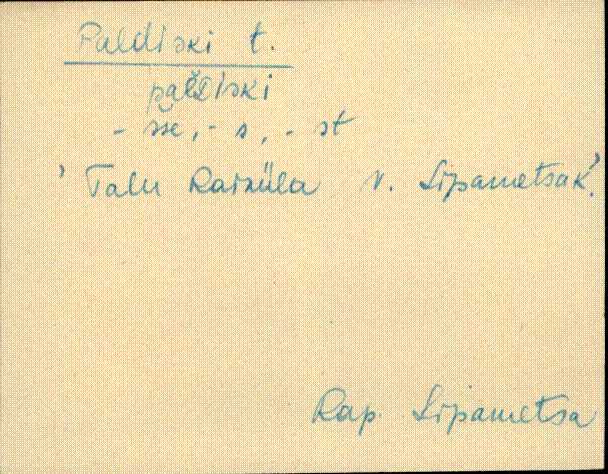 Paldiski t.
- sse, - s, - st
' Talu Raiküla v. Lipametsak.'
Rap. Lipametsa